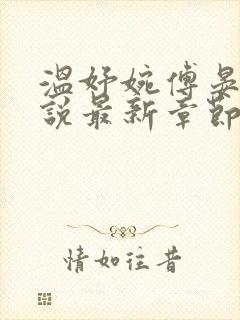 温妤婉傅晏
說最新章節
情如往昔